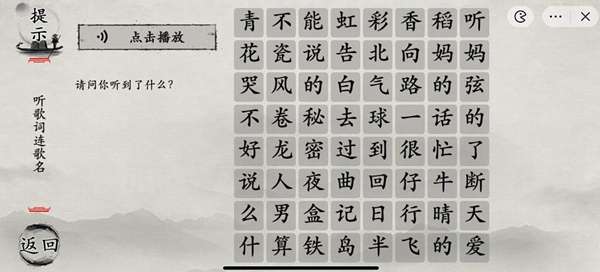 提示
点击播放
请问你听到了什么?
听歌词连歌名
返回
青不能虹彩香稻听
花瓷说告北向妈妈
哭风的白气路的弦
不卷秘去球一话的
好龙密过到很忙了
说人夜曲回仔牛断
么男盒记日行晴天
什算铁岛半飞的爱